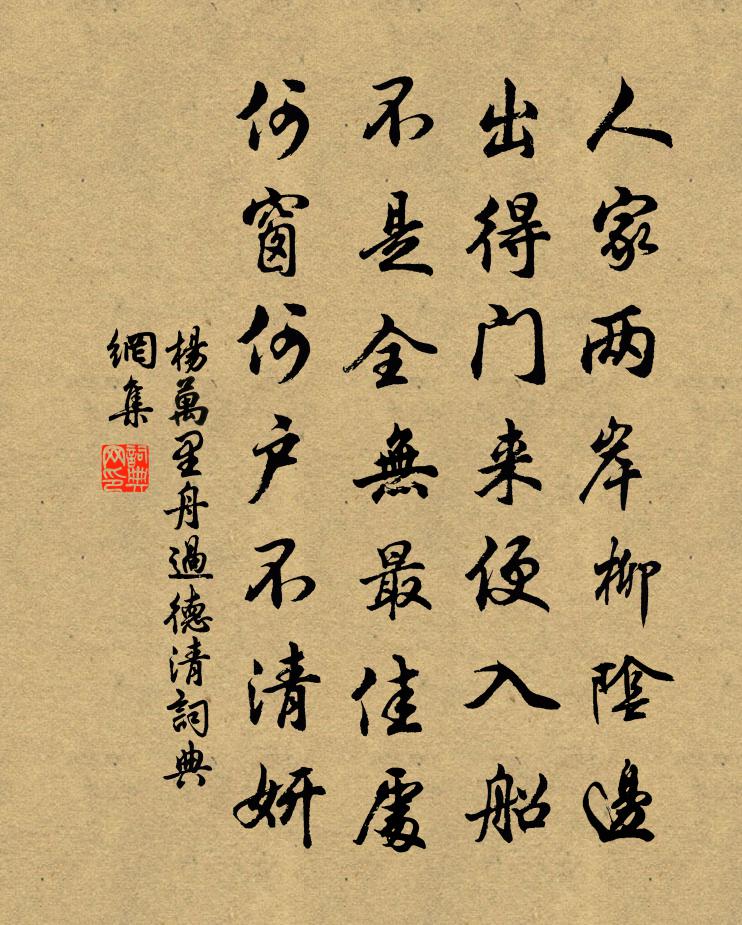 人家两岸柳陰邊
出得门来便入船
不是全無最佳處
何窗何户不清妍
楊萬里舟過德清詞典
網集
詞典
网印